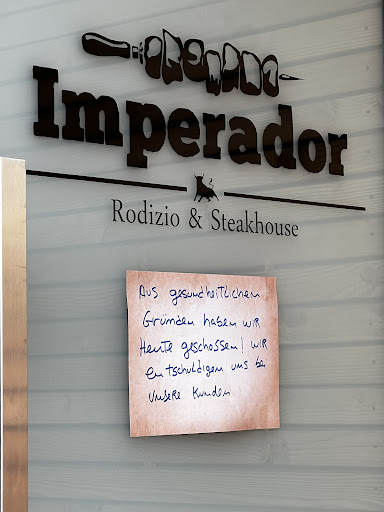 Imperador
Rodizio & Steakhouse
Aus gesundheitlichen
Gründen haben wir
Heute geschossen! wir
entschuldigen uns bei
unsere Kunden